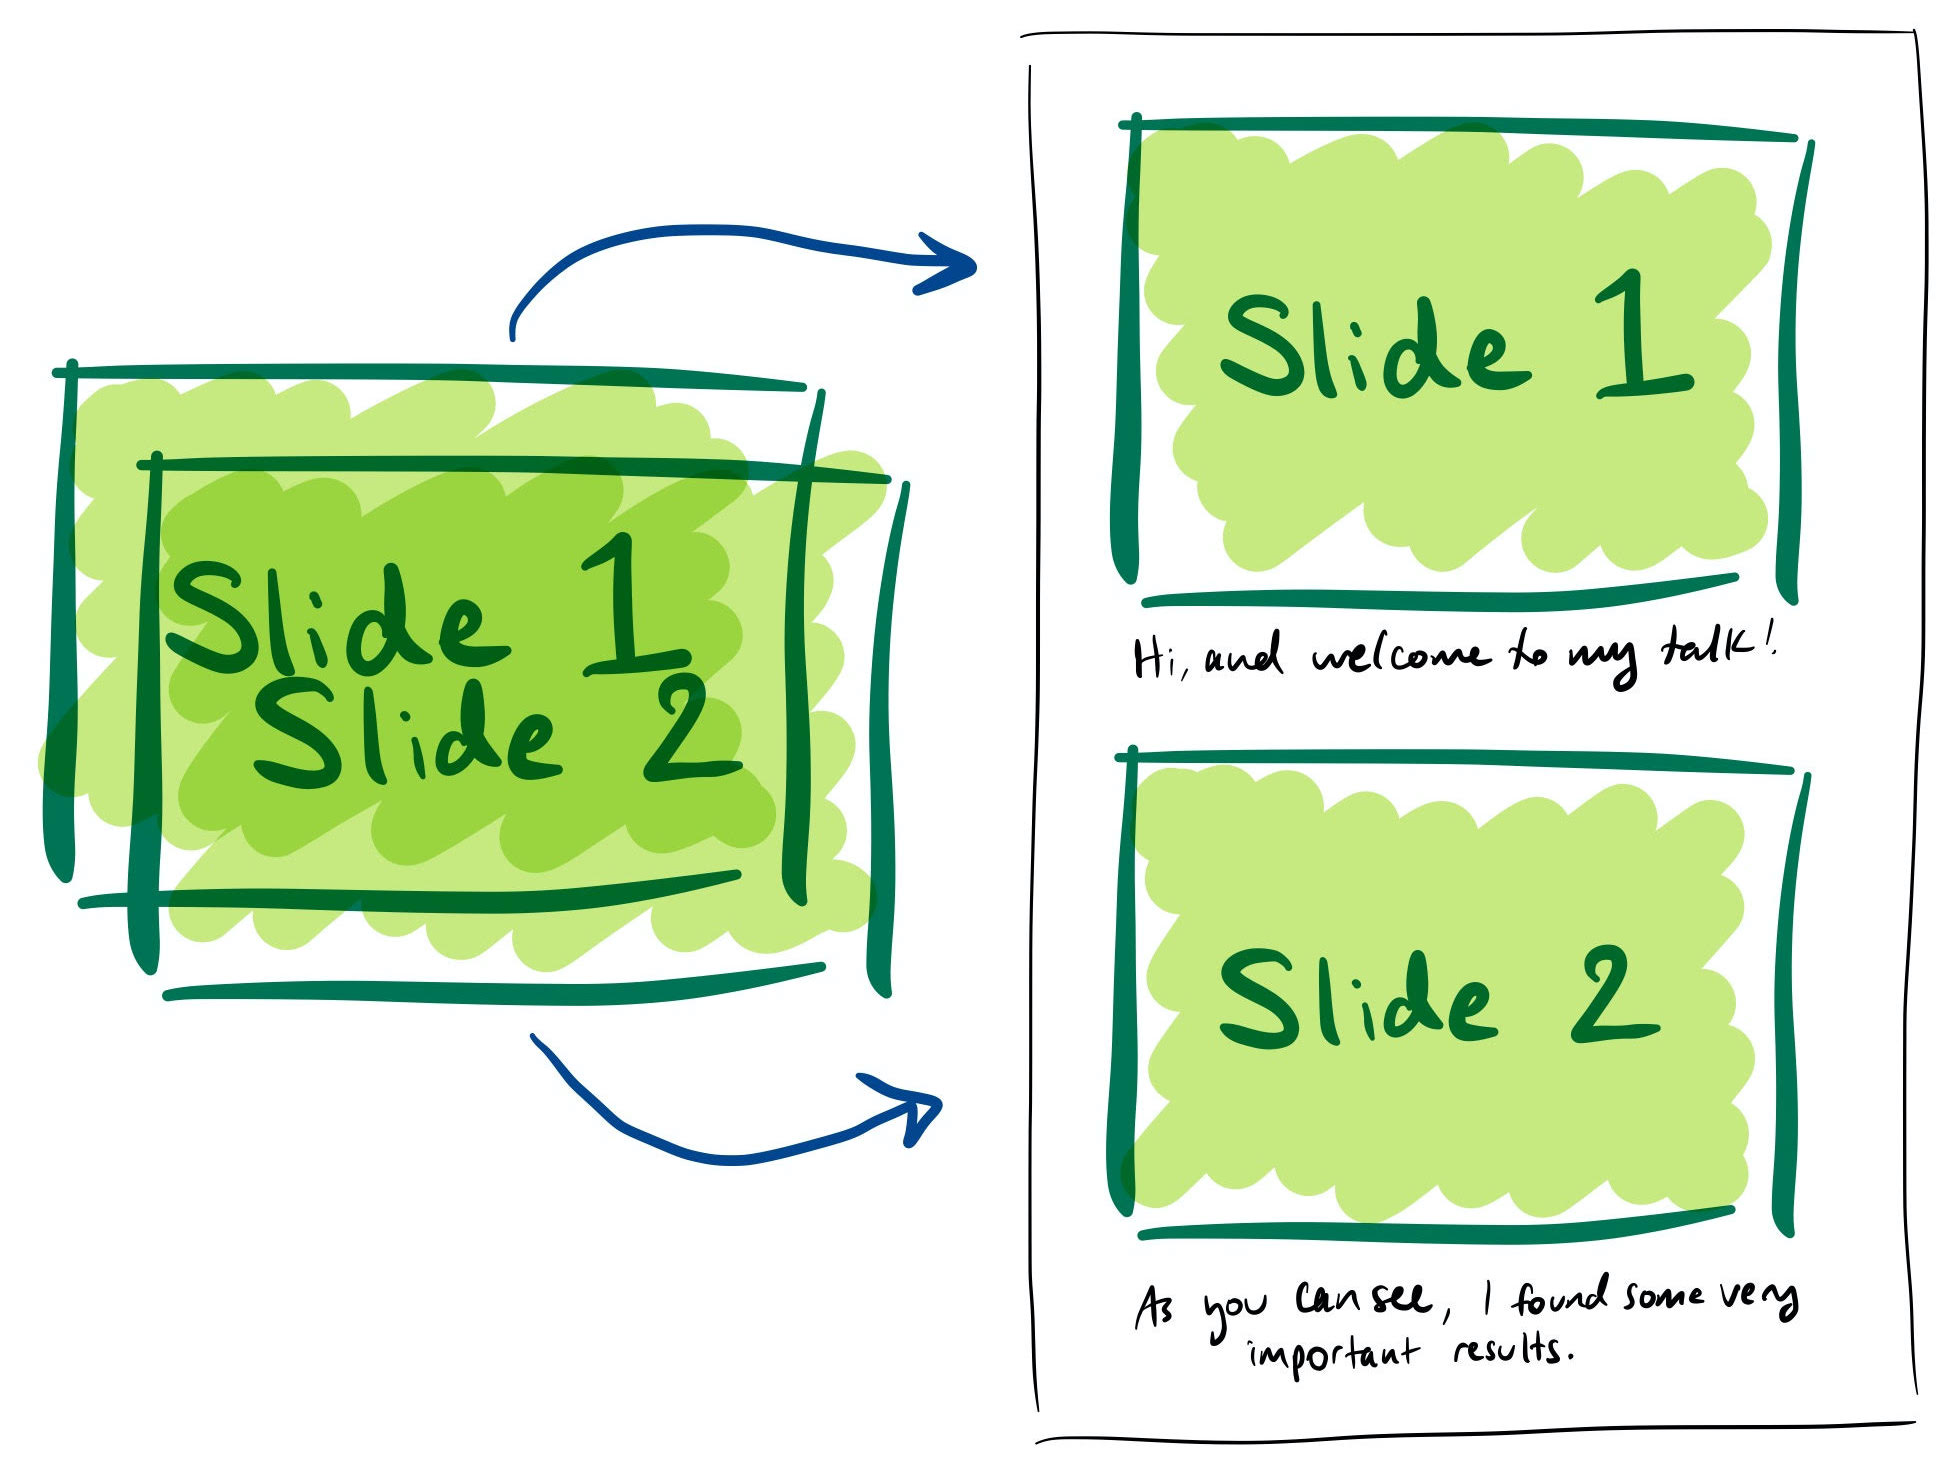 Slide 1
Slide 2
Slide 1
Hi, and welcome to my talk!
Slide 2
As you can see, I found some very
important results.